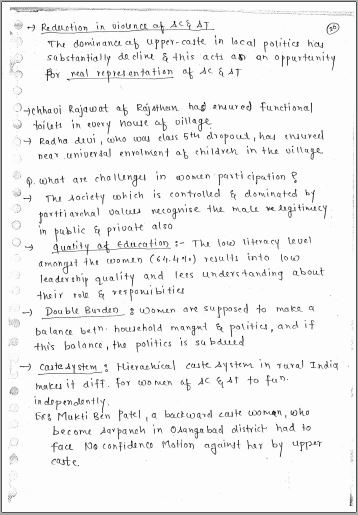 → Reduction in violence of SC & ST
The dominance of upper-caste in local politics has
substantially decline & this acts as an opportunity
for real representation of SC & ST
→ Chhavi Rajawat of Rajsthan has ensured functional
toilets in every house of village
→ Radha devi, who was class 5th dropout, has ensured
near universal enrolment of children in the village
Q. what are challenges in women participation ?
→ The society which is controlled & dominated by
partiarchal values recognise the male legitimecy
in public & private also
→ Quality of Education :- The low literacy level
amongst the women (64.4%) results into low
leadership quality and less understanding about
their role & responsibities
→ Double Burden : Women are supposed to make a
balance betn. household mangnt & politics, and if
this balance, the politics is subdued
→ Caste system : Hierachical caste system in rural India
makes it diff. for women of SC & ST to fun.
independently.
Ex: Mukti Ben Patel, a backward caste woman, who
become sarpanch in Osangabad district had to
face No confidence Motion against her by upper
caste.